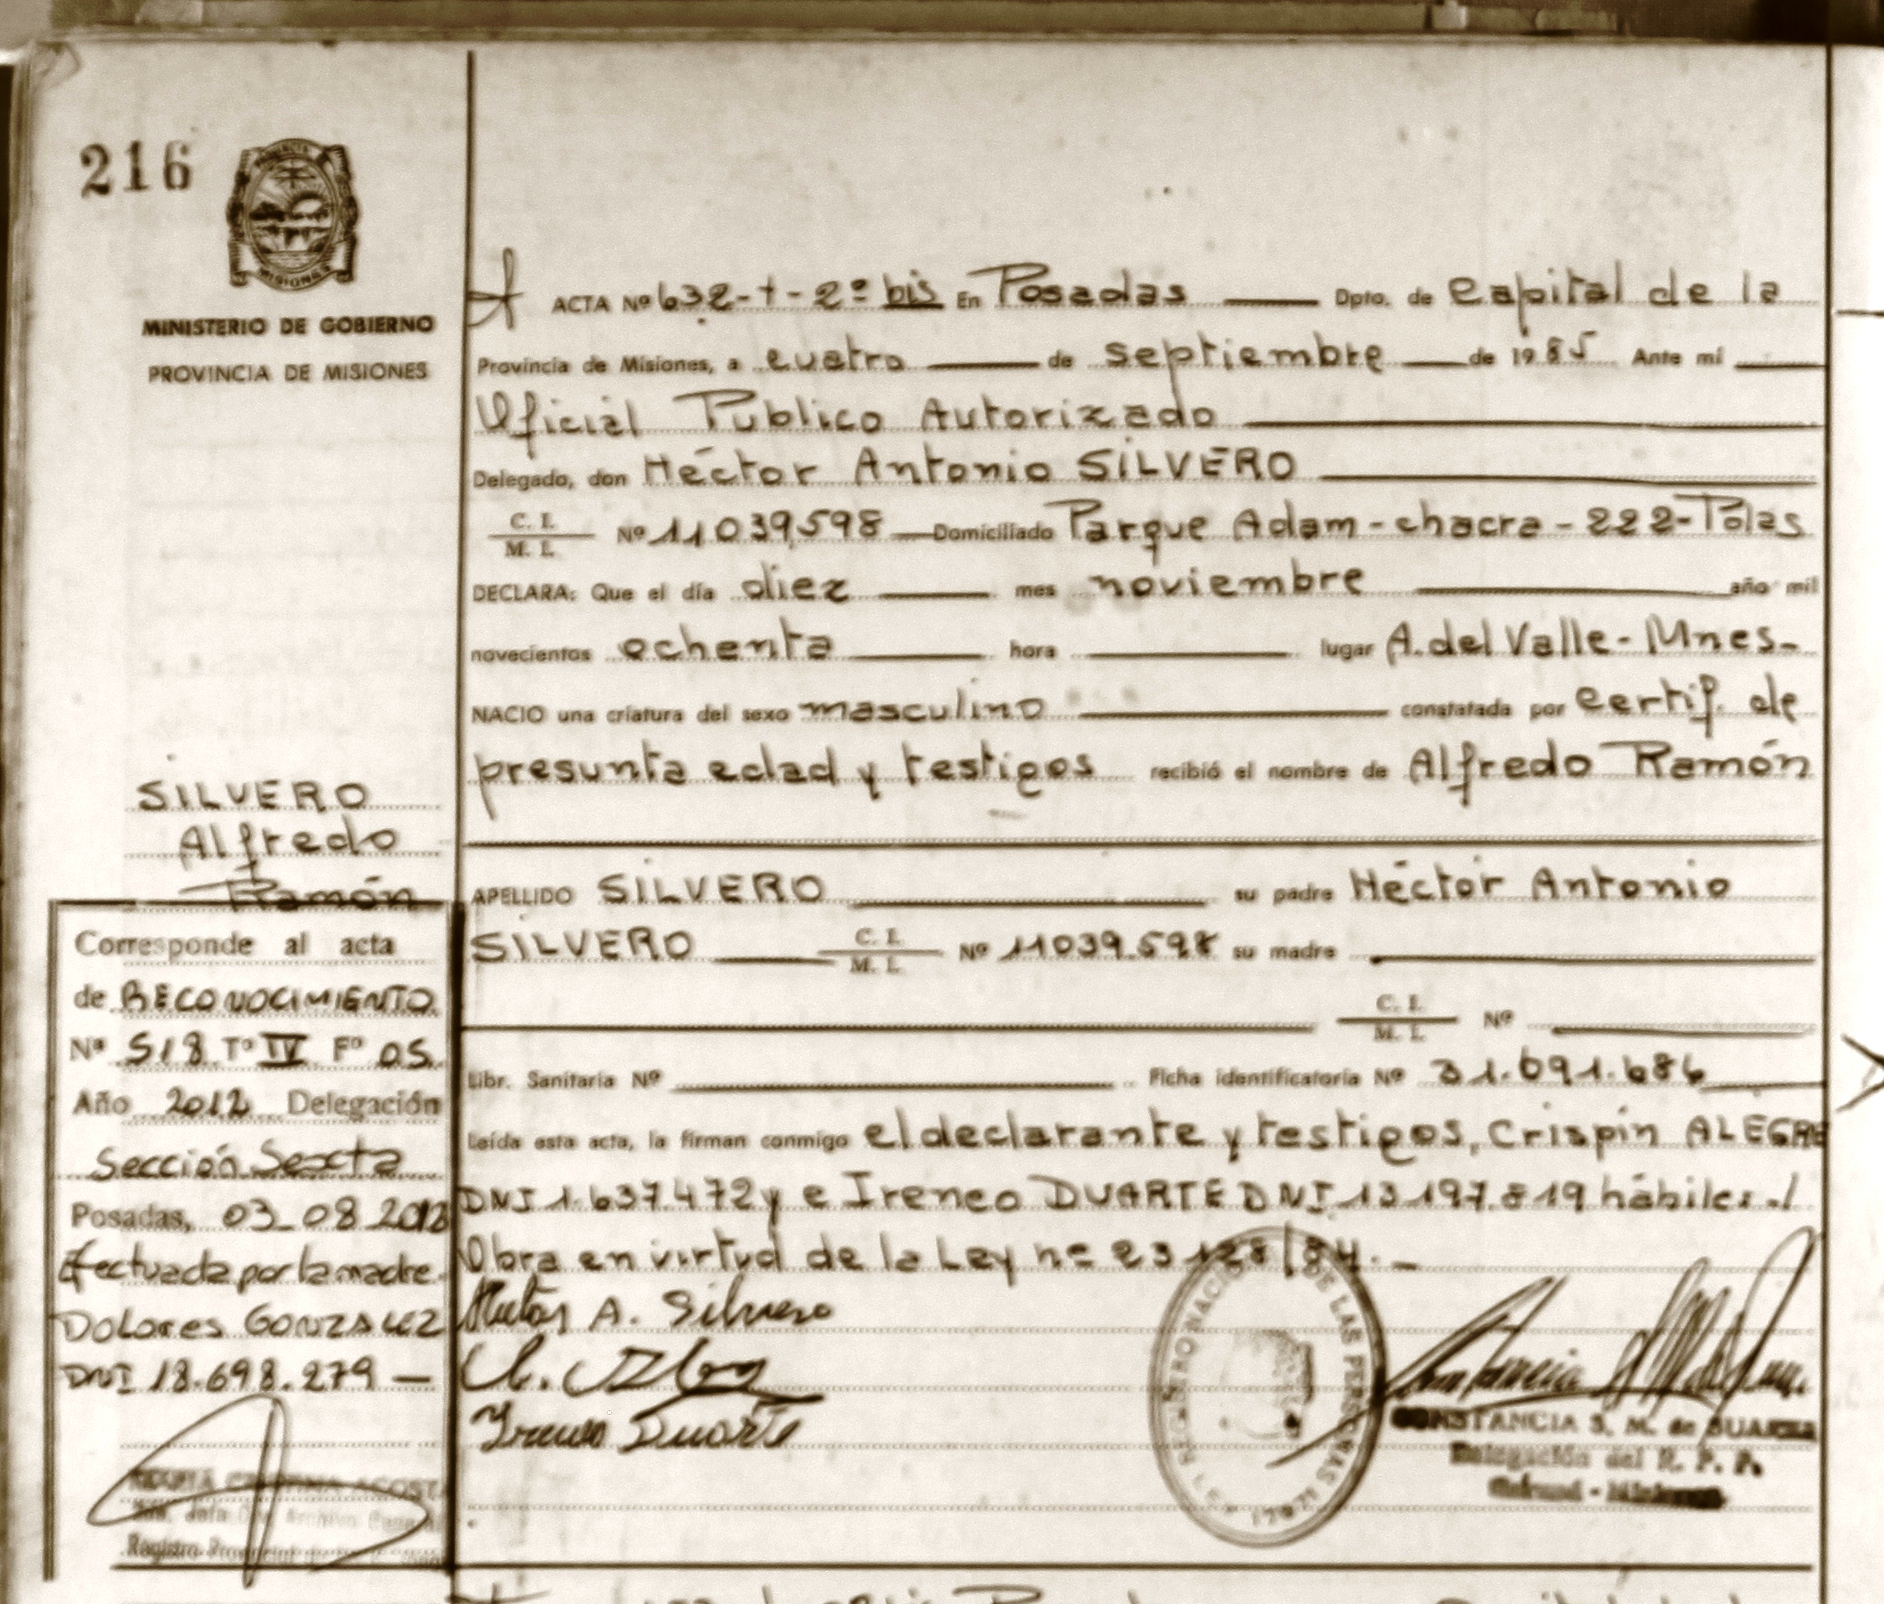 216
MINISTERIO DE GOBIERNO
PROVINCIA DE MISIONES
ACTA Nº 632-T-2º bis En Posadas Dpto. de Capital de la
Provincia de Misiones, a cuatro de septiembre de 1985 Ante mí
Oficial Publico Autorizado
Delegado, don Héctor Antonio SILVERO
C. I.
M. I. Nº 11039,598 Domiciliado Parque Adam-chacra-222-Pdas
DECLARA: Que el día diez mes noviembre año mil
novecientos ochenta hora lugar A.del Valle-Mnes-
NACIO una criatura del sexo masculino constatada por certif. de
presunta edad y testigos recibió el nombre de Alfredo Ramón
SILVERO
Alfredo
Ramón
APELLIDO SILVERO su padre Héctor Antonio
SILVERO C. I.
M. I. Nº 11039.598 su madre
C. I.
M. I. Nº
Libr. Sanitaria Nº Ficha identificatoria Nº 31.691.686
Leída esta acta, la firman conmigo el declarante y testigos, Crispín ALEGRE
DNI 1.637.472 y e Ireneo DUARTE DNI 13197.819 hábiles./
Obra en virtud de la Ley nº 23128/84.-
A. Silvero
Ireneo Duarte
REGISTRO NACIONAL DE LAS PERSONAS
CONSTANCIA S. M. de SUAREZ
Delegación del R. P. P.
Corresponde al acta
de RECONOCIMIENTO
Nº 518 Tº IV Fº 05
Año 2012 Delegación
Sección Sexta
Posadas, 03-08 2012
Efectuada por la madre
Dolores GONZALEZ
DNI 18.698.279 —
MARIA CRISTINA ACOSTA